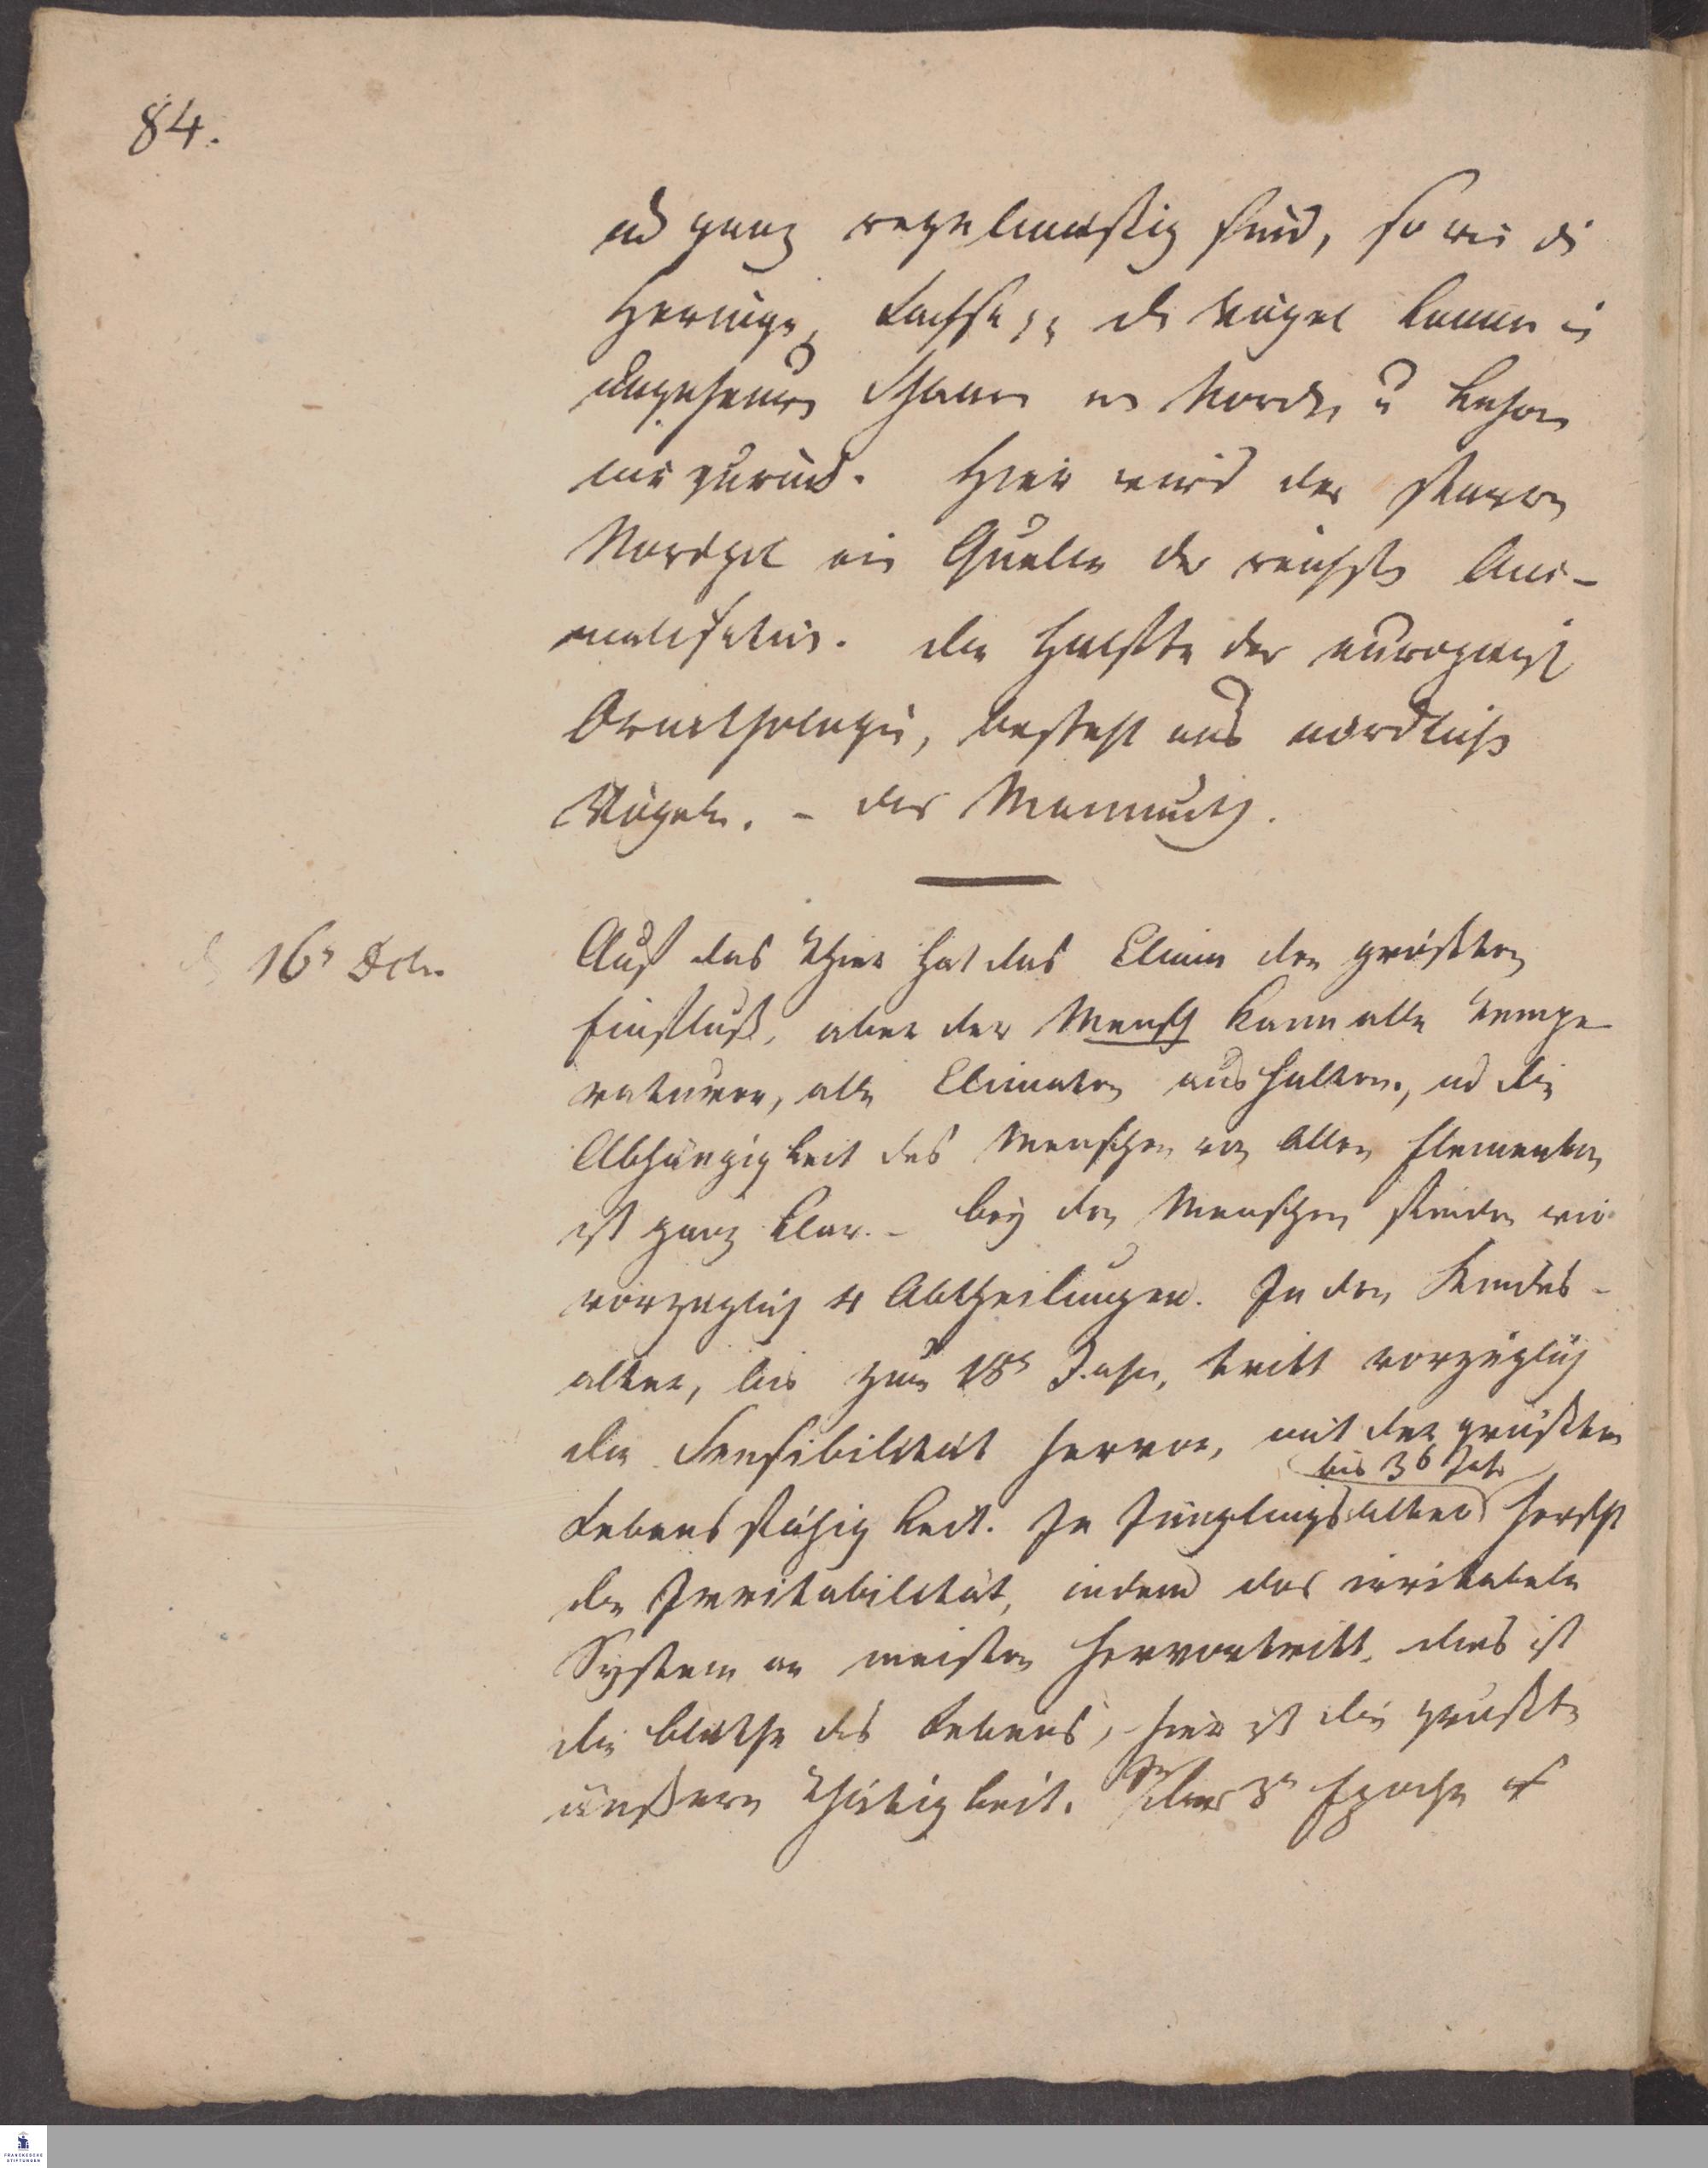 84.
ud ganz regelmäßig sind, so wie di
Heringe, Lachse, die Vögel komen in
ungeheure Scharen Norden u kehren
nie zurück. Hier wird der starre
Nordpol ein Quelle der reichsten Ani-
malisation. Die Haelfte der europaeisch
Ornithologie, besteht aus nördlich
Vögeln. – der Mammuth.
16n Dcbr.
Auf das Thier hat das Clima den größten
Einfluß, aber der Mensch kann alle Tempe
raturen, alle Climaten aushalten, ud die
Abhängigkeit des Menschen von allen Elementen
ist ganz klar. – bey den Menschen finden wir
vorzüglich 4 Abtheilungen. In den Kindes-
alter, bis zum 18n Jahr, tritt vorzüglich
die Sensibilität hervor, mit der größten
bis 36 Jahr
Lebensfähigkeit. In Jünglingsalter herscht
die Irritabilität, indem das irritabele
System am meisten hervortritt, dies ist
die blüthe des Lebens, hier ist die größte
äußere Thätigkeit. 3n Epoche
FRANCKESCHE
STIFTUNGEN